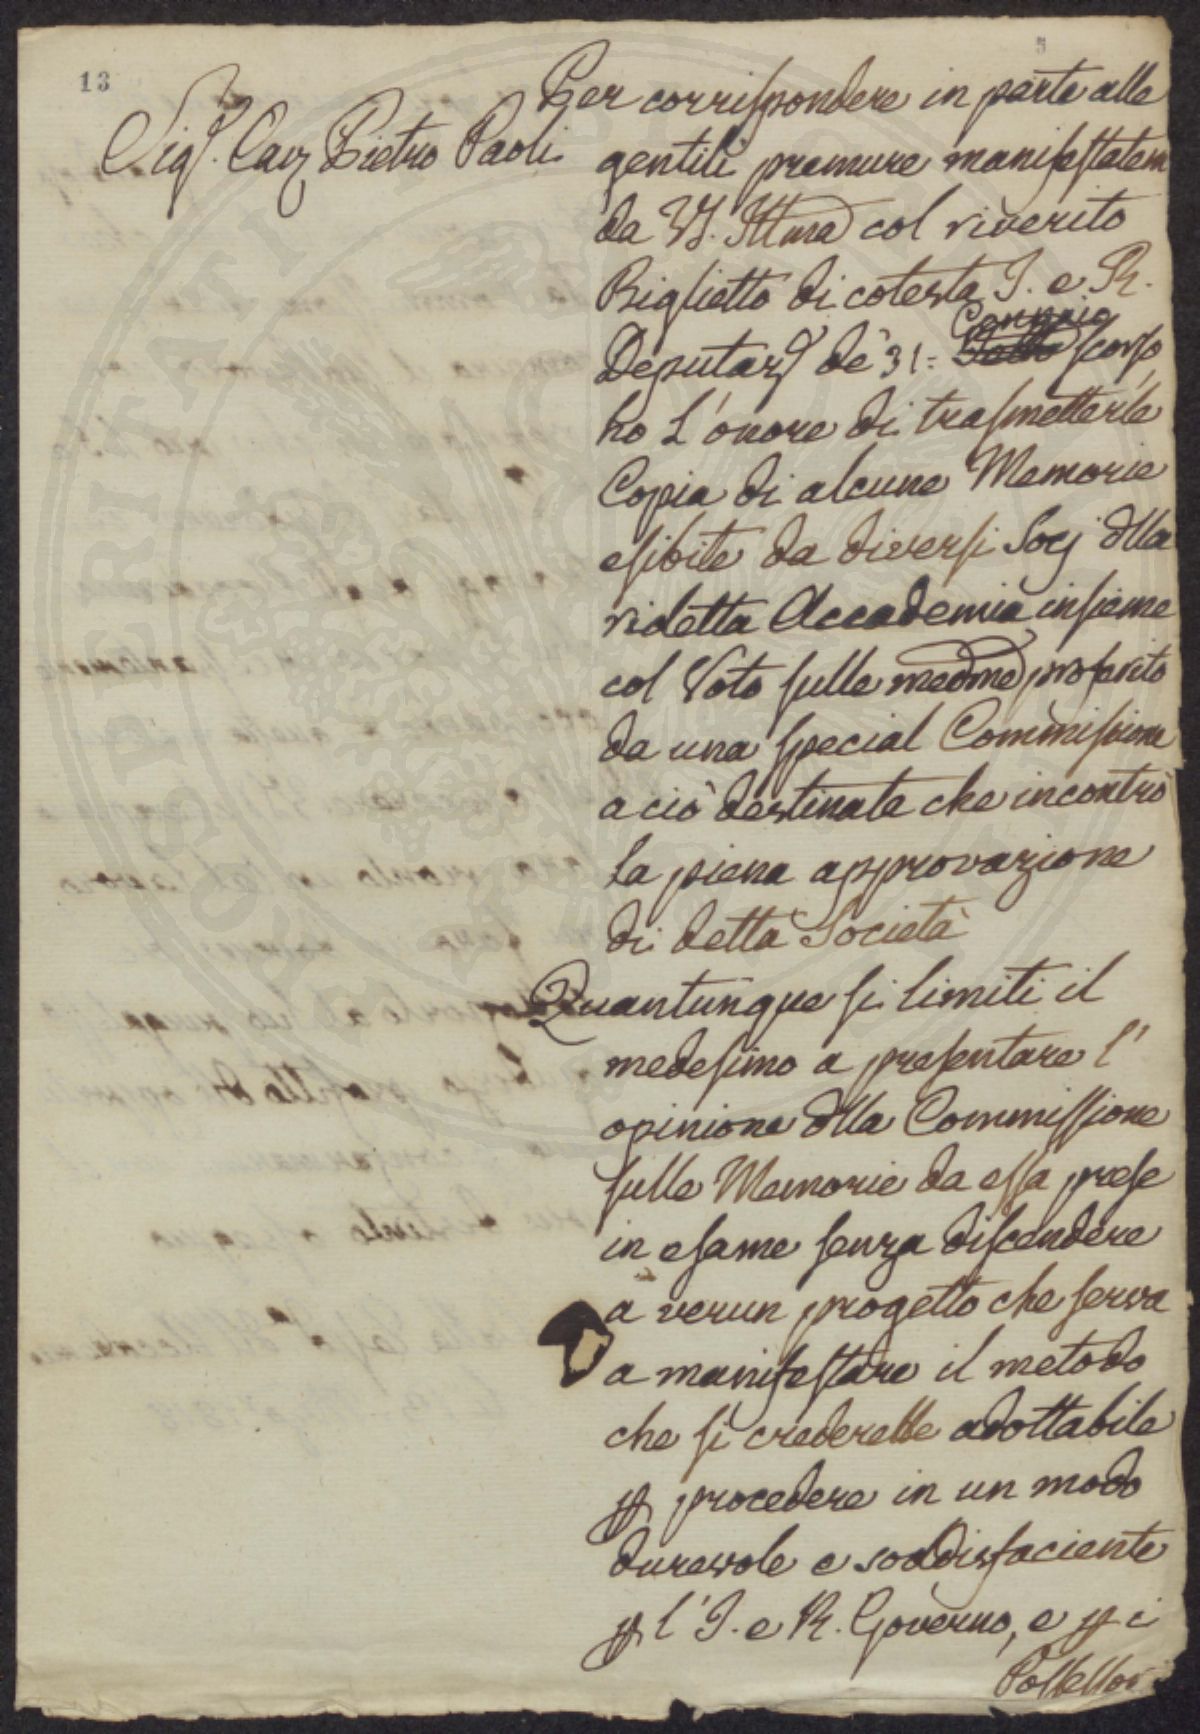 13
5
Sigr. Cav. Pietro Paoli
Per corrispondere in parte alle
gentili premure manifestatem
da VS. Illma col riverito
Biglietto di cotesta I. e R.
Deputaz. de 31= Gennaio scorso
ho l'onore di trasmetterle
Copia di alcune Memorie
esibite da diversi Socj dlla
ridetta Accademia insieme
col Voto sulle medme proferito
da una special Commissione
a ciò destinata che incontrò
la piena approvazione
di detta Società
Quantunque si limiti il
medesimo a presentare l'
opinione dlla Commissione
sulle Memorie da essa prese
in esame senza discendere
a verun progetto che serva
a manifestare il metodo
che si crederebbe adottabile
p procedere in un modo
durevole e soddisfaciente
p l'I. e R. Governo, e p i
Possessor
PROSPERITATI